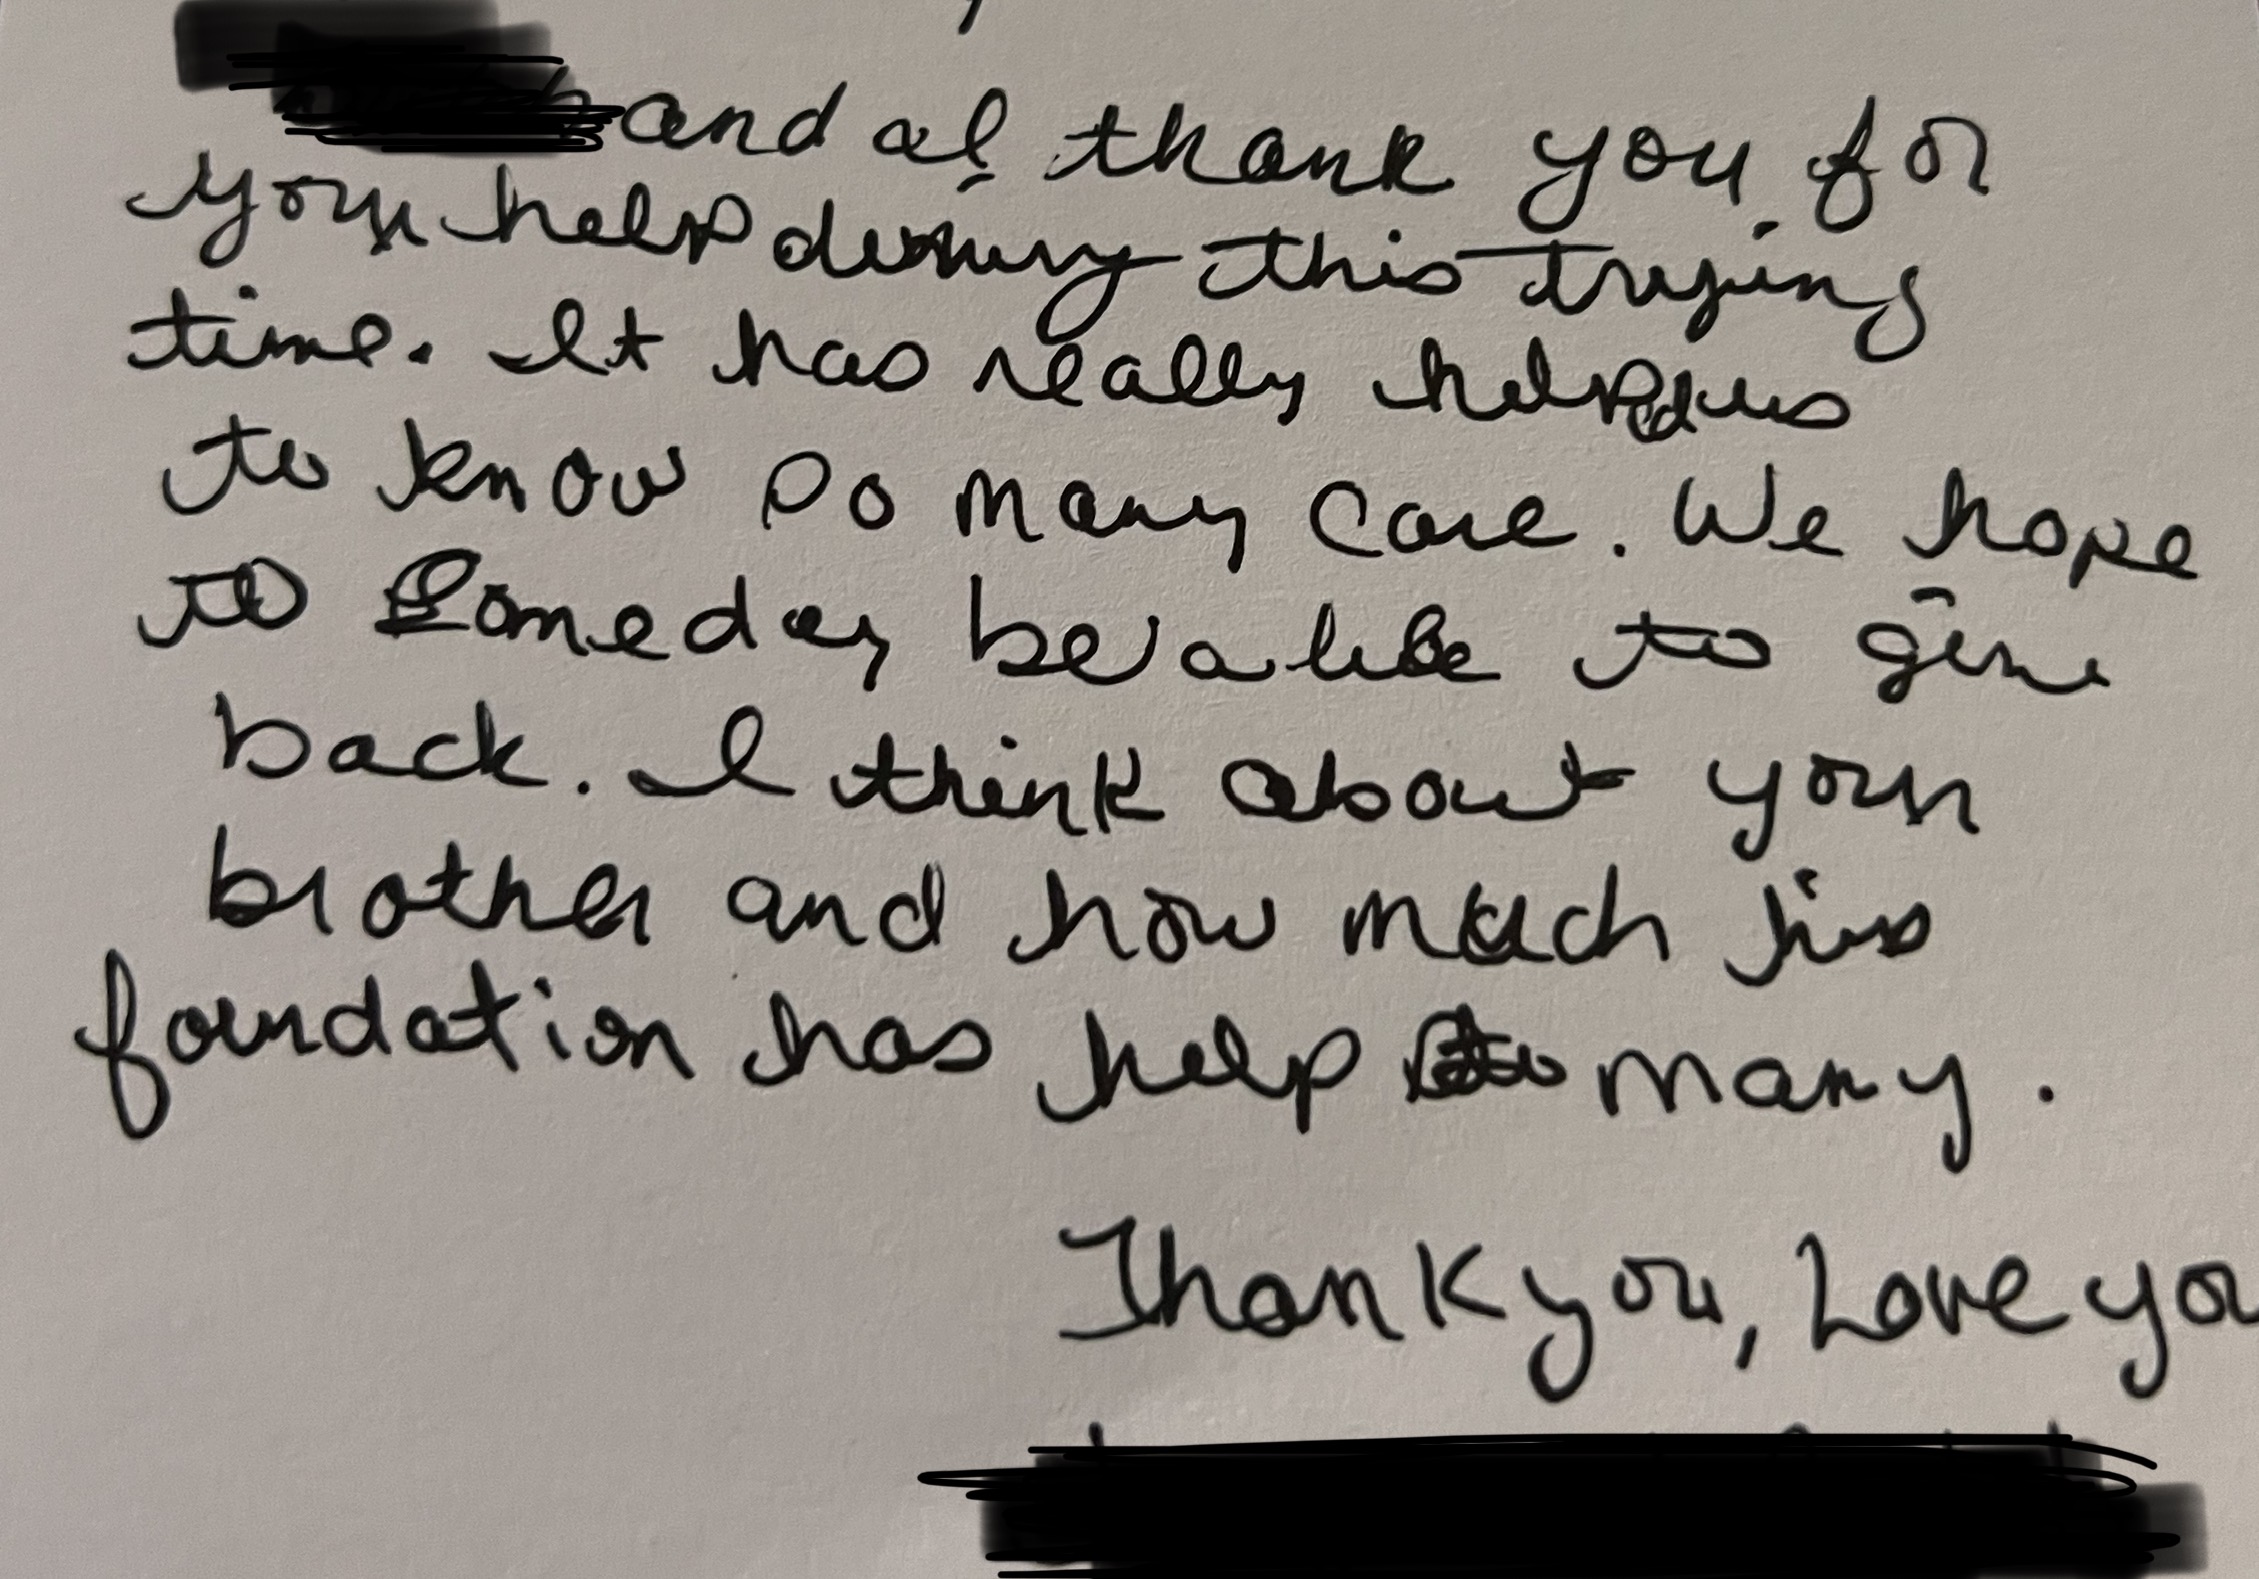 and I thank you for
your help during this trying
time. It has really helped us
to know so many care. We hope
to someday be able to give
back. I think about your
brother and how much his
foundation has help so many.
Thank you, Love you